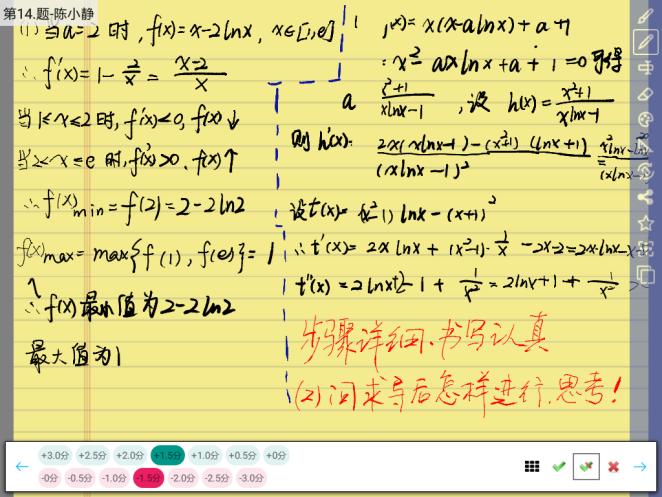 第14.题-陈小静
(1) 当a=2时, f(x)=x-2lnx, x∈[1,e]
∴f'(x)=1-2/x=(x-2)/x
当1≤x≤2时,f'(x)<0, f(x)↓
当2<x≤e时,f'(x)>0, f(x)↑
∴f(x)min=f(2)=2-2ln2
f(x)max=max{f(1), f(e)}=1
∴f(x)最小值为2-2ln2
最大值为1
(x)=x(x-alnx)+a+1
=x²-axlnx+a+1=0可得
a (x²+1)/(xlnx-1), 设h(x)=(x²+1)/(xlnx-1)
则h'(x)=(2x(xlnx-1)-(x²+1)(lnx+1))/(xlnx-1)²=
设t(x)=(x²-1)lnx-(x+1)²
∴t'(x)=2xlnx+(x²-1)·1/x-2x-2=2xlnx-x
t''(x)=2lnx+2-1+1/x²=2lnx+1+1/x²>
步骤详细、书写认真
(2)问求导后怎样进行,思考!
+3.0分 +2.5分 +2.0分 +1.5分 +1.0分 +0.5分 +0分
-0分 -0.5分 -1.0分 -1.5分 -2.0分 -2.5分 -3.0分